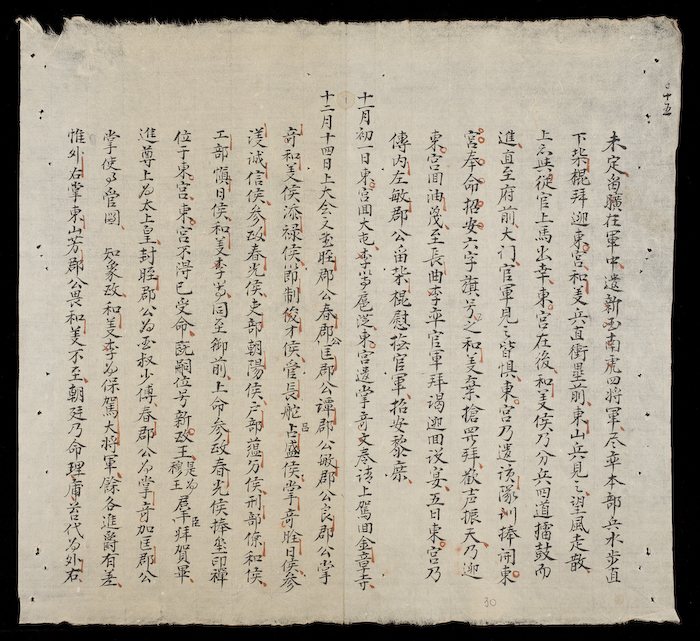 十五
未定留在軍中遣新西南虎四將軍尽率本部兵水步直
下柴棍拜迎東宮和美兵直衝壘前東山兵見之望風走散
上與從官上馬出幸東宮在後和美侯乃分兵四道擂鼓而
進直至府前大門官軍見之皆惧東宮乃遣該隊訓捧開東
宮奉命招安六字旗号之和美棄搶罗拜歡声振天乃迎
東宮回油至長曲李率官軍拜謁迎回設宴五日東宮乃
傳内左敏郡公留柴棍慰撫官軍招安黎庶
十一月初一日東宮回大屯李才等扈從東宮遣掌奇文卷請上駕回金章寺
十二月十四日上大会文臣郡公春郡公匡郡公譚郡公敏郡公良郡公掌
奇和美侯添禄侯節制俊才侯管長舵占盛侯掌奇日侯參
謀誠信侯參政春光侯吏部朝陽侯户部蘊分侯刑部僚和侯
工部慎日侯和美李才同至御前上命參政春光侯捧璽印禪
位于東宮東宮不得已受命既嗣位号新政王是為穆王臣下拜賀畢
進尊上為太上皇封郡公為叔少傅春郡公為掌奇加匡郡公
掌使管圖 知象政和美李才為保駕大將軍餘各進爵有差
惟外右掌東山芳郡公畏和美不至朝廷乃命理庸苦代為外右
30